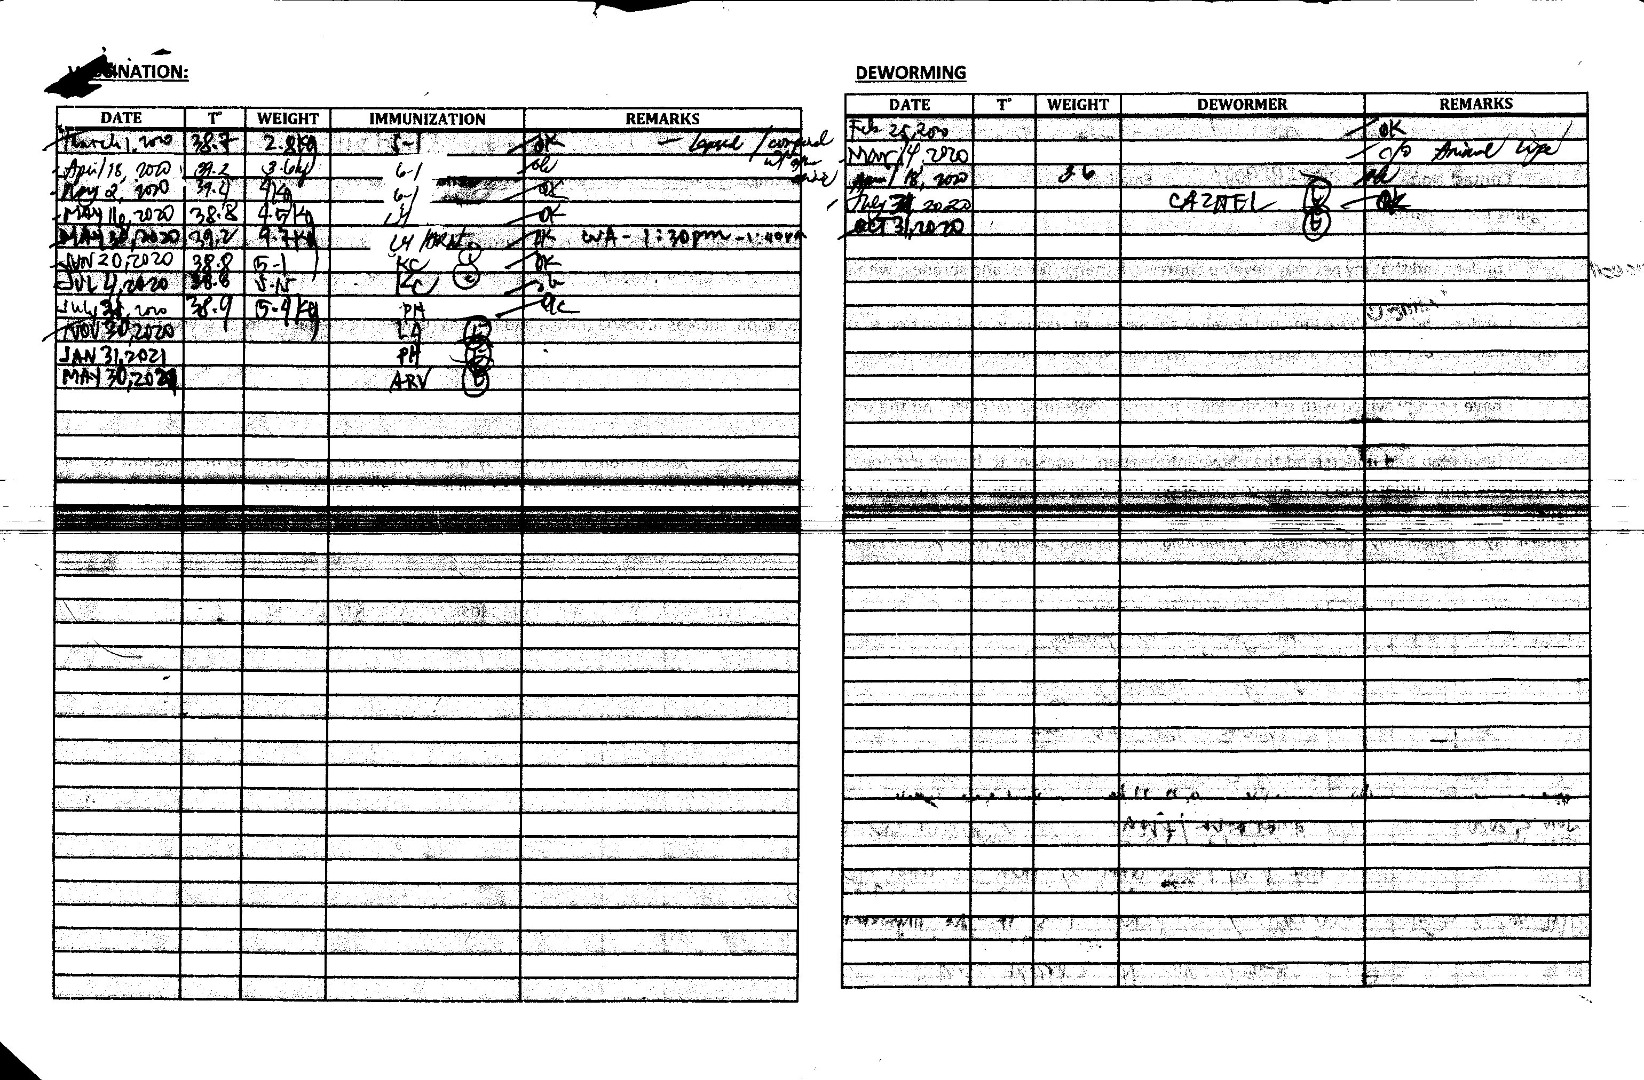 VACCINATION:
DATE T° WEIGHT IMMUNIZATION REMARKS
March 1, 2020 38.7 2.8kg 5-1 OK
April 18, 2020 39.2 3.6kg 6-1 ok
May 2, 2020 39.2 4kg 6-1 OK
MAY 16, 2020 38.8 4.5kg L4 OK
MAY 30, 2020 39.2 4.7kg L4 OK WA - 1:30pm -
JUN 20, 2020 38.8 5-1 KC 1 OK
JUL 4, 2020 38.8 KC ok
July 2020 38.9 5.9kg PH
NOV 30, 2020 LA
JAN 31, 2021 PH
MAY 30, ARV
DEWORMING
DATE T° WEIGHT DEWORMER REMARKS
Feb 25, 2020 OK
Mar 14, 2020 c/o Animal
April 18, 2020 3.6 ok
July 2020 CAZNEL OK
OCT 31, 2020